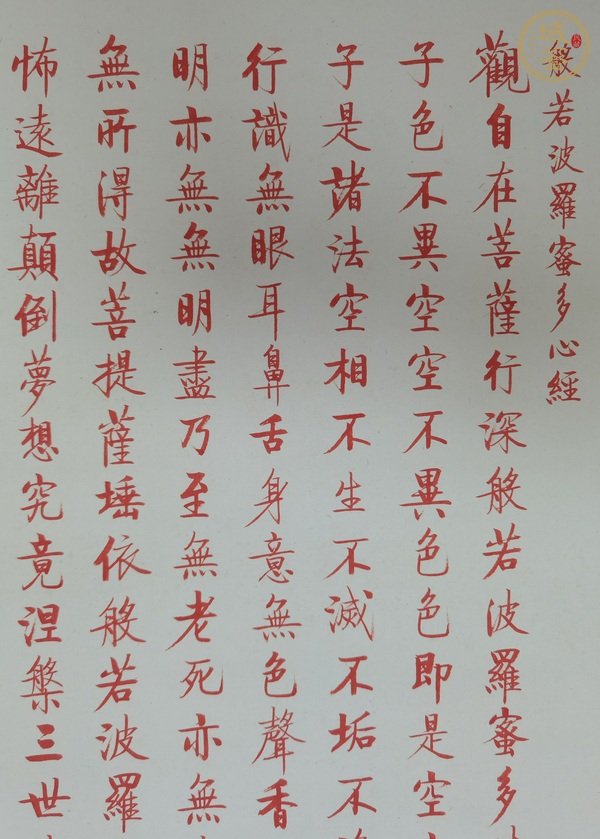 般若波羅蜜多心經
觀自在菩薩行深般若波羅蜜多
子色不異空空不異色色即是空
子是諸法空相不生不滅不垢不
行識無眼耳鼻舌身意無色聲香
明亦無無明盡乃至無老死亦無
無所得故菩提薩埵依般若波羅
怖遠離顛倒夢想究竟涅槃三世